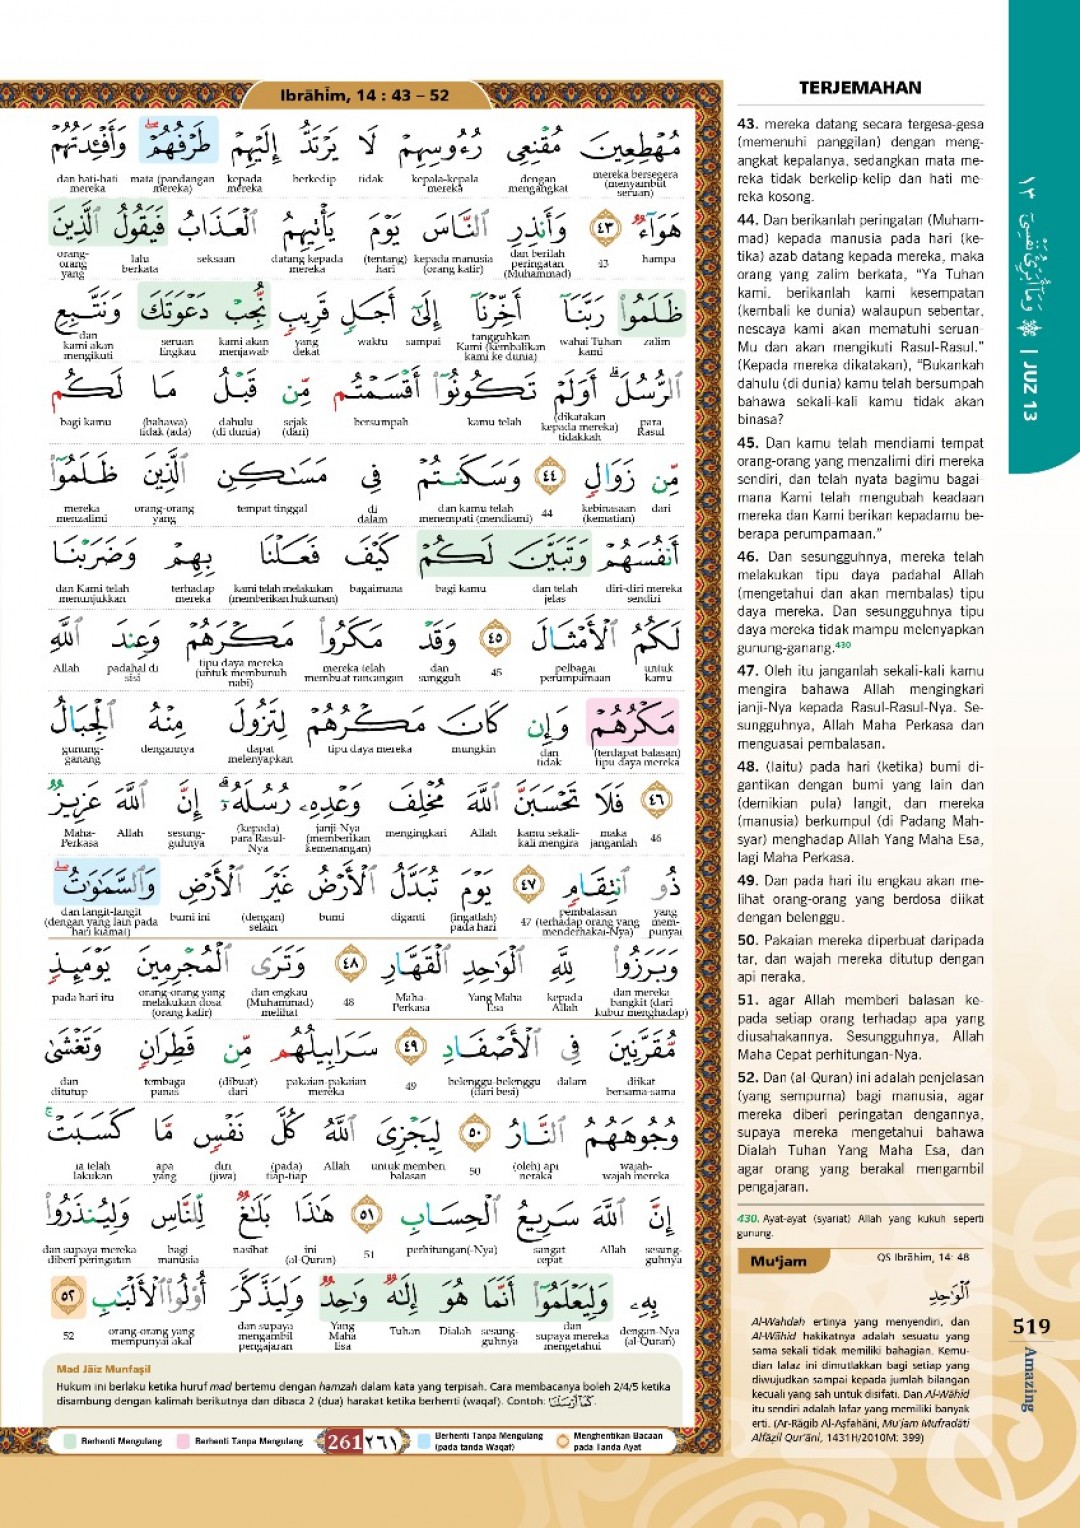 Ibrāhīm, 14 : 43 – 52
مُهْطِعِينَ مُقْنِعِى رُءُوسِهِمْ لَا يَرْتَدُّ إِلَيْهِمْ طَرْفُهُمْ ۖ وَأَفْـِٔدَتُهُمْ
dan hati-hati mata (pandangan kepada berkedip tidak kepala-kepala dengan mereka bersegera
mereka mereka) mereka mereka mengangkat (menyambut
seruan)
هَوَآءٌ ٤٣ وَأَنذِرِ ٱلنَّاسَ يَوْمَ يَأْتِيهِمُ ٱلْعَذَابُ فَيَقُولُ ٱلَّذِينَ
orang- lalu seksaan datang kepada (tentang) kepada manusia dan berilah 43 hampa
orang berkata mereka hari (orang kafir) peringatan
yang (Muhammad)
ظَلَمُوا۟ رَبَّنَآ أَخِّرْنَآ إِلَىٰٓ أَجَلٍ قَرِيبٍ نُّجِبْ دَعْوَتَكَ وَنَتَّبِعِ
dan seruan kami akan yang waktu sampai tangguhkan wahai Tuhan zalim
kami akan Engkau menjawab dekat Kami (kembalikan kami
mengikuti kami ke dunia)
ٱلرُّسُلَ ۗ أَوَلَمْ تَكُونُوٓا۟ أَقْسَمْتُم مِّن قَبْلُ مَا لَكُم
bagi kamu (bahawa) dahulu sejak bersumpah kamu telah (dikatakan para
tidak (ada) (di dunia) (dari) kepada mereka) Rasul
tidakkah
مِّن زَوَالٍ ٤٤ وَسَكَنتُمْ فِى مَسَـٰكِنِ ٱلَّذِينَ ظَلَمُوٓا۟
mereka orang-orang tempat tinggal di dan kamu telah 44 kebinasaan dari
menzalimi yang dalam menempati (mendiami) (kematian)
أَنفُسَهُمْ وَتَبَيَّنَ لَكُمْ كَيْفَ فَعَلْنَا بِهِمْ وَضَرَبْنَا
dan Kami telah terhadap kami telah melakukan bagaimana bagi kamu dan telah diri-diri mereka
menunjukkan mereka (memberikan hukuman) jelas sendiri
لَكُمُ ٱلْأَمْثَالَ ٤٥ وَقَدْ مَكَرُوا۟ مَكْرَهُمْ وَعِندَ ٱللَّهِ
Allah padahal di tipu daya mereka mereka telah dan 45 pelbagai untuk
sisi (untuk membunuh membuat rancangan sungguh perumpamaan kamu
nabi)
مَكْرُهُمْ وَإِن كَانَ مَكْرُهُمْ لِتَزُولَ مِنْهُ ٱلْجِبَالُ
gunung- dengannya dapat tipu daya mereka mungkin dan (terdapat balasan)
ganang melenyapkan tidak tipu daya mereka
٤٦ فَلَا تَحْسَبَنَّ ٱللَّهَ مُخْلِفَ وَعْدِهِۦ رُسُلَهُۥٓ ۗ إِنَّ ٱللَّهَ عَزِيزٌ
Maha- Allah sesung- (kepada) janji-Nya mengingkari Allah kamu sekali- maka 46
Perkasa guhnya para Rasul- (memberikan kali mengira janganlah
Nya kemenangan)
ذُو ٱنتِقَامٍ ٤٧ يَوْمَ تُبَدَّلُ ٱلْأَرْضُ غَيْرَ ٱلْأَرْضِ وَٱلسَّمَـٰوَٰتُ ۖ
dan langit-langit bumi ini (dengan) bumi diganti (ingatlah) 47 pembalasan yang
(dengan yang lain pada selain pada hari (terhadap orang yang mem-
hari kiamat) menderhakai-Nya) punyai
وَبَرَزُوا۟ لِلَّهِ ٱلْوَٰحِدِ ٱلْقَهَّارِ ٤٨ وَتَرَى ٱلْمُجْرِمِينَ يَوْمَئِذٍ
pada hari itu orang-orang yang dan engkau 48 Maha- Yang Maha kepada dan mereka
melakukan dosa (Muhammad) Perkasa Esa Allah bangkit (dari
(orang kafir) melihat kubur menghadap)
مُّقَرَّنِينَ فِى ٱلْأَصْفَادِ ٤٩ سَرَابِيلُهُم مِّن قَطِرَانٍ وَتَغْشَىٰ
dan tembaga (dibuat) pakaian-pakaian 49 belenggu-belenggu dalam diikat
ditutup panas dari mereka (dari besi) bersama-sama
وُجُوهَهُمُ ٱلنَّارُ ٥٠ لِيَجْزِىَ ٱللَّهُ كُلَّ نَفْسٍ مَّا كَسَبَتْ ۚ
ia telah apa diri (pada) Allah untuk memberi 50 (oleh) api wajah-
lakukan yang (jiwa) tiap-tiap balasan neraka wajah mereka
إِنَّ ٱللَّهَ سَرِيعُ ٱلْحِسَابِ ٥١ هَـٰذَا بَلَـٰغٌ لِّلنَّاسِ وَلِيُنذَرُوا۟
dan supaya mereka bagi nasihat ini 51 perhitungan(-Nya) sangat Allah sesung-
diberi peringatan manusia (al-Quran) cepat guhnya
بِهِۦ وَلِيَعْلَمُوٓا۟ أَنَّمَا هُوَ إِلَـٰهٌ وَٰحِدٌ وَلِيَذَّكَّرَ أُو۟لُوا۟ ٱلْأَلْبَـٰبِ ٥٢
52 orang-orang yang dan supaya Yang Tuhan Dialah sesung- dan dengan-Nya
mempunyai akal mengambil Maha guhnya supaya mereka (al-Quran)
pengajaran Esa mengetahui
Mad Jāiz Munfaṣil
Hukum ini berlaku ketika huruf mad bertemu dengan hamzah dalam kata yang terpisah. Cara membacanya boleh 2/4/5 ketika
disambung dengan kalimah berikutnya dan dibaca 2 (dua) harakat ketika berhenti (waqaf). Contoh: كَمَآ أَرْسَلْنَا
Berhenti Mengulang Berhenti Tanpa Mengulang 261 ٢٦١ Berhenti Tanpa Mengulang (pada tanda Waqaf) Menghentikan Bacaan pada Tanda Ayat
TERJEMAHAN
43. mereka datang secara tergesa-gesa
(memenuhi panggilan) dengan meng-
angkat kepalanya, sedangkan mata me-
reka tidak berkelip-kelip dan hati me-
reka kosong.
44. Dan berikanlah peringatan (Muham-
mad) kepada manusia pada hari (ke-
tika) azab datang kepada mereka, maka
orang yang zalim berkata, “Ya Tuhan
kami, berikanlah kami kesempatan
(kembali ke dunia) walaupun sebentar,
nescaya kami akan mematuhi seruan-
Mu dan akan mengikuti Rasul-Rasul.”
(Kepada mereka dikatakan), “Bukankah
dahulu (di dunia) kamu telah bersumpah
bahawa sekali-kali kamu tidak akan
binasa?
45. Dan kamu telah mendiami tempat
orang-orang yang menzalimi diri mereka
sendiri, dan telah nyata bagimu bagai-
mana Kami telah mengubah keadaan
mereka dan Kami berikan kepadamu be-
berapa perumpamaan.”
46. Dan sesungguhnya, mereka telah
melakukan tipu daya padahal Allah
(mengetahui dan akan membalas) tipu
daya mereka. Dan sesungguhnya tipu
daya mereka tidak mampu melenyapkan
gunung-ganang.430
47. Oleh itu janganlah sekali-kali kamu
mengira bahawa Allah mengingkari
janji-Nya kepada Rasul-Rasul-Nya. Se-
sungguhnya, Allah Maha Perkasa dan
menguasai pembalasan.
48. (Iaitu) pada hari (ketika) bumi di-
gantikan dengan bumi yang lain dan
(demikian pula) langit, dan mereka
(manusia) berkumpul (di Padang Mah-
syar) menghadap Allah Yang Maha Esa,
lagi Maha Perkasa.
49. Dan pada hari itu engkau akan me-
lihat orang-orang yang berdosa diikat
dengan belenggu.
50. Pakaian mereka diperbuat daripada
tar, dan wajah mereka ditutup dengan
api neraka,
51. agar Allah memberi balasan ke-
pada setiap orang terhadap apa yang
diusahakannya. Sesungguhnya, Allah
Maha Cepat perhitungan-Nya.
52. Dan (al-Quran) ini adalah penjelasan
(yang sempurna) bagi manusia, agar
mereka diberi peringatan dengannya,
supaya mereka mengetahui bahawa
Dialah Tuhan Yang Maha Esa, dan
agar orang yang berakal mengambil
pengajaran.
430. Ayat-ayat (syariat) Allah yang kukuh seperti
gunung.
Mu‘jam QS Ibrāhīm, 14: 48
ٱلْوَٰحِدِ
Al-Wahdah ertinya yang menyendiri, dan
Al-Wāhid hakikatnya adalah sesuatu yang
sama sekali tidak memiliki bahagian. Kemu-
dian lafaz ini dimutlakkan bagi setiap yang
diwujudkan sampai kepada jumlah bilangan
kecuali yang sah untuk disifati. Dan Al-Wāhid
itu sendiri adalah lafaz yang memiliki banyak
erti. (Ar-Rāgib Al-Aṣfahāni, Mu‘jam Mufradāti
Alfāẓil Qur’āni, 1431H/2010M: 399)
١٣ وَمَآ أُبَرِّئُ نَفْسِىٓ | JUZ 13
519
Amazing